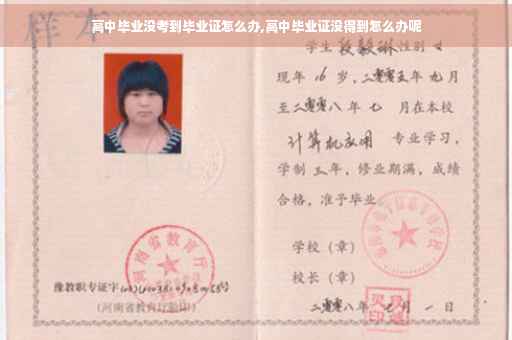 样本
高中毕业没考到毕业证怎么办,高中毕业证没得到怎么办呢
学生 段毅琳 性别 女
现年 16 岁,二零零五年 九月
至二零零八年 七 月在本校
计算机应用 专业学习,
学制 三年,修业期满,成绩
合格,准予毕业
学校(章)
校长(章)
二零零八年 七月 一日
河南省教育厅
豫教职专证字
(河南省教育厅验印)